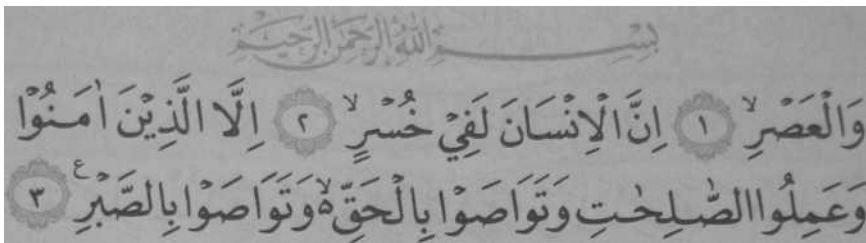 بِسْمِ اللّٰهِ الرَّحْمٰنِ الرَّحِيْمِ
وَالْعَصْرِۙ ١ اِنَّ الْاِنْسَانَ لَفِيْ خُسْرٍۙ ٢ اِلَّا الَّذِيْنَ اٰمَنُوْا
وَعَمِلُوا الصّٰلِحٰتِ وَتَوَاصَوْا بِالْحَقِّ ەۙ وَتَوَاصَوْا بِالصَّبْرِ ࣖ ٣